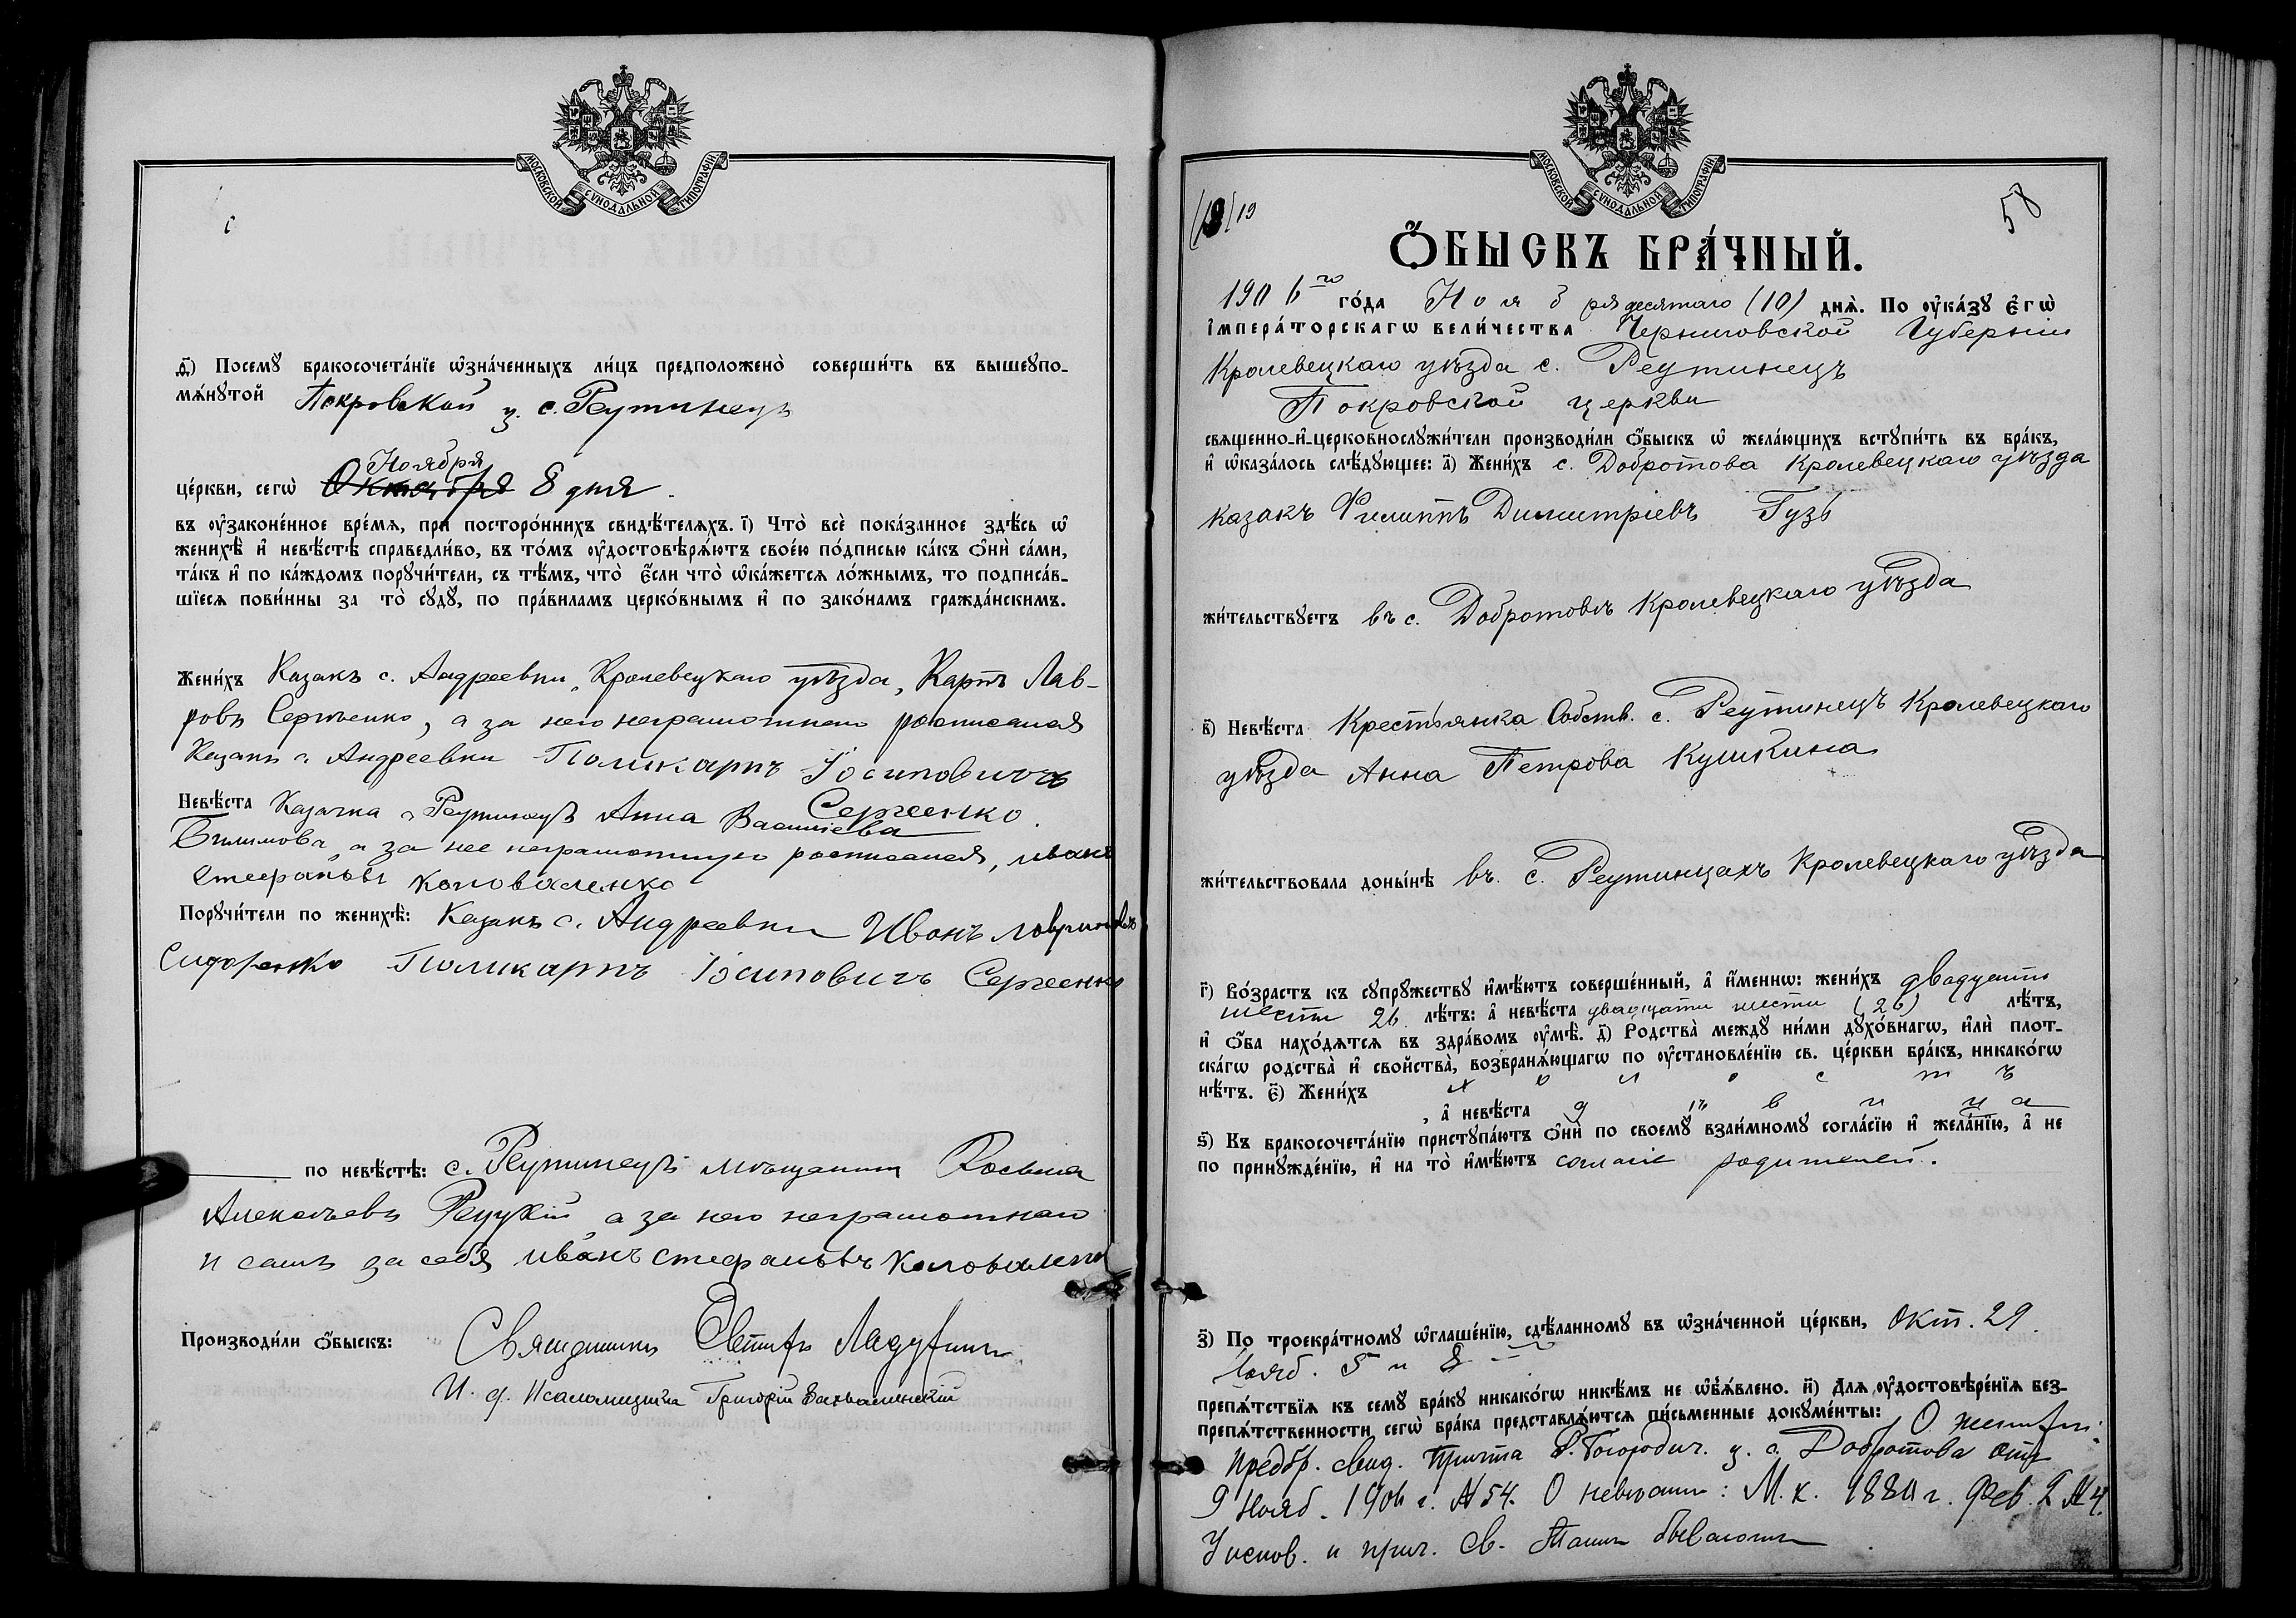 МОСКОВСКОЙ СѴНОДАЛЬНОЙ ТИПОГРАФІИ
с
д҃) Посемꙋ̀ бракосочета́нїе ѡ҆зна́ченныхъ ли́цъ предположено̀ соверши́ть въ вышеꙋпо-
мѧ́нꙋтой Покровской ц. с. Реутинецъ
Ноября
це́ркви, сегѡ̀ Октября 8 дня.
въ ᲂу҆законе́нное вре́мѧ, при посторо́ннихъ свидѣ́телѧхъ. і҃) Что̀ всѐ пока́занное здѣ́сь ѡ҆
женихѣ̀ и҆ невѣ́стѣ справедли́во, въ то́мъ ᲂу҆достовѣрѧ́ютъ свое́ю по́дписью ка́къ ѻ҆нѝ са́ми,
та́къ и҆ по ка́ждомъ порꙋчи́тели, съ тѣ́мъ, что̀ є҆́сли что̀ ѡ҆ка́жетсѧ ло́жнымъ, то подписа́в-
шїесѧ пови́нны за то̀ сꙋдꙋ̀, по пра́виламъ церко́внымъ и҆ по зако́намъ гражда́нскимъ.
Жени́хъ Казакъ с. Андреевки, Кролевецкаго уѣзда, Карпъ Лав-
ровъ Сергѣенко, а за него неграмотнаго росписался
Казакъ с. Андреевки Поликарпъ Іосиповичъ
Сергеенко.
Невѣ́ста Казачка с. Реутинецъ Анна Васильева
Билимова, а за нее неграмотную росписался, иванъ
стефановъ коноваленко
Порꙋчи́тели по женихѣ̀: Казакъ с. Андреевки Иванъ
Сидоренко Поликарпъ Іосиповичъ Сергеенко
по невѣ́стѣ: с. Реутинецъ мѣщанинъ Косьма
Алексѣевъ Реуцкій, а за него неграмотнаго
и самъ за себя иванъ стефановъ коноваленко
Производи́ли ѻ҆́быскъ: Священникъ
И. д. Псаломщика Григорій
МОСКОВСКОЙ СѴНОДАЛЬНОЙ ТИПОГРАФІИ
19 58
Ѻ҆́БЫСКЪ БРА́ЧНЫЙ.
1906го го́да Ноября десятаго (10) днѧ̀. По ᲂу҆ка́зꙋ є҆гѡ̀
і҆мпера́торскагѡ вели́чества Черниговской Губерніи
Кролевецкаго уѣзда с. Реутинецъ
Покровской церкви
свѧщенно-и҆-церковнослꙋжи́тели производи́ли ѻ҆́быскъ ѡ҆ жела́ющихъ встꙋпи́ть въ бра́къ,
и҆ ѡ҆каза́лось слѣ́дꙋющее: а҃) Жени́хъ с. Добротова Кролевецкаго уѣзда
казакъ Филиппъ Димитріевъ Гузь
жи́тельствꙋетъ въ с. Добротовѣ Кролевецкаго уѣзда
в҃) Невѣ́ста Крестьянка Собств. с. Реутинецъ Кролевецкаго
уѣзда Анна Петрова Кушкина
жи́тельствовала доны́нѣ въ. с. Реутинцахъ Кролевецкаго уѣзда
г҃) Во́зрастъ къ сꙋпрꙋ́жествꙋ и҆мѣ́ютъ соверше́нный, а҆ и҆́меннѡ: жени́хъ двадцати
шести 26 лѣ́тъ: а҆ невѣ́ста двадцати шести (26) лѣ́тъ,
и҆ ѻ҆́ба нахо́дѧтсѧ въ здра́вомъ ᲂу҆мѣ̀. д҃) Родства̀ междꙋ̀ ни́ми дꙋхо́внагѡ, и҆лѝ плот-
ска́гѡ родства̀ и҆ свойства̀, возбранѧ́ющагѡ по ᲂу҆становле́нїю св. це́ркви бра́къ, никако́гѡ
нѣ́тъ. є҃) Жени́хъ холостъ
, а҆ невѣ́ста дѣвица
ѕ҃) Къ бракосочета́нїю пристꙋпа́ютъ ѻ҆нѝ по своемꙋ̀ взаи́мномꙋ согла́сїю и҆ жела́нїю, а҆ не
по принꙋжде́нїю, и҆ на то̀ и҆мѣ́ютъ согласіе родителей.
з҃) По троекра́тномꙋ ѡ҆глаше́нїю, сдѣ́ланномꙋ въ ѡ҆зна́ченной це́ркви, Окт. 29.
Нояб. 5 и 8
препѧ́тствїѧ къ семꙋ̀ бра́кꙋ никако́гѡ никѣ́мъ не ѡ҆б̾ѧ́влено. и҃) Длѧ ᲂу҆достовѣре́нїѧ без-
препѧ́тственности сегѡ̀ бра́ка представлѧ́ютсѧ пи́сьменные докꙋме́нты: О женихѣ:
предбр. свид. причта Р. Богородич. ц. с. Добротова отъ
9 Нояб. 1906 г. № 54. О невѣстѣ: М. к. 1880 г. Фев. 2 № 4.
У испов. и прич. Св. Таинъ бываютъ